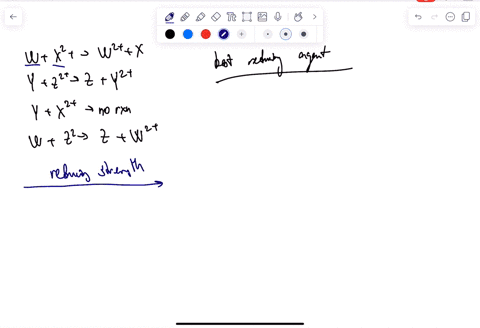 W + X²⁺ → W²⁺ + X
Y + Z²⁺ → Z + Y²⁺
Y + X²⁺ → no rxn
W + Z² → Z + W²⁺
reducing strength
best reducing argent